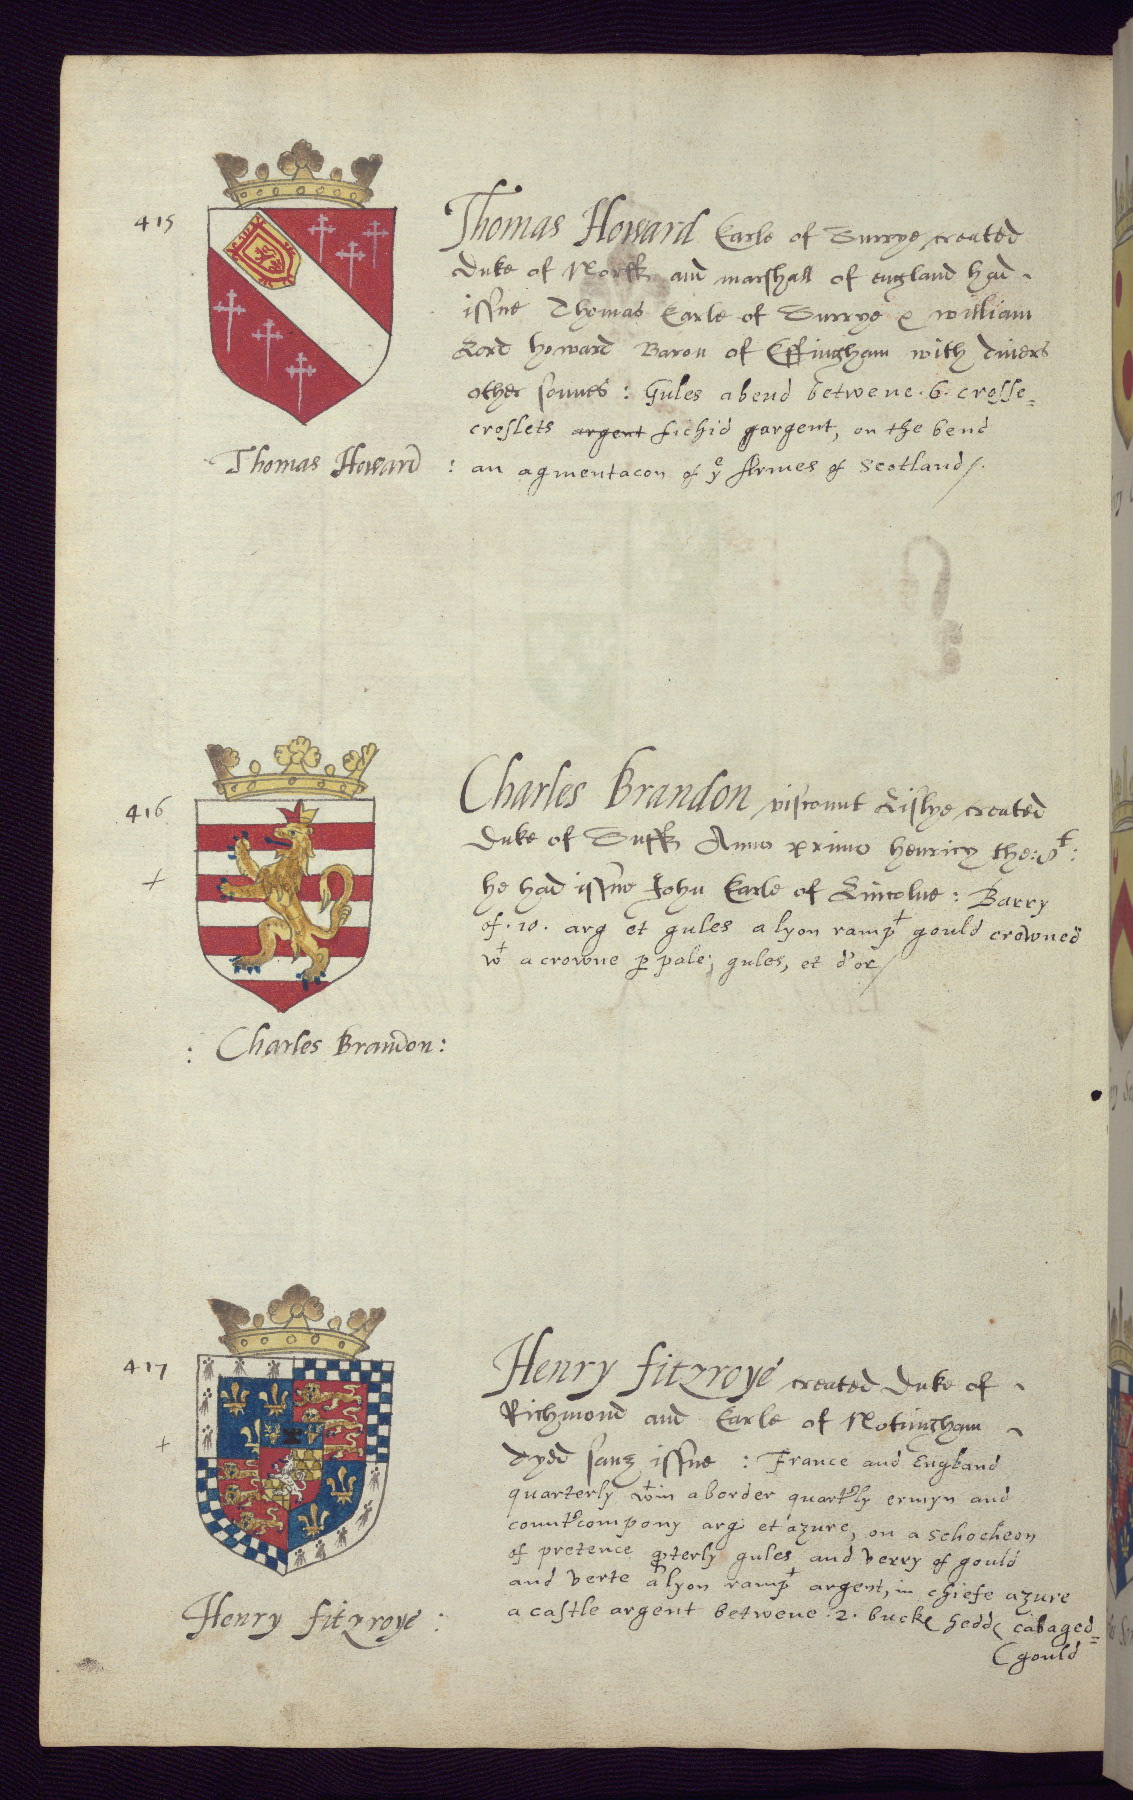 415
Thomas Howard Earle of Surrye, created
duke of Norff and marshall of england had
issue Thomas Earle of Surrye & william
Lord howard Baron of Effingham with divers
other sonnes : Gules a bend betwene .6. crosse=
croslets argent fichid argent, on the bend
Thomas Howard : an agmentacon of ye Armes of Scotland/.
416
Charles Brandon viscount Lislye created
Duke of Suff Anno primo henricy the .8t:
he had issue John Earle of Lincolne : Barry
of .10. arg et gules a lyon rampt gould crowned
wt a crowne p pale, gules, et d'or/
: Charles Brandon :
417
Henry fitzroye created Duke of
Richmond and Earle of Notingham
dyed sanz issue : France and England
quarterly wtin a border quartrly ermyn and
countrcompony arg et azure, on a schocheon
of pretence qrterly gules and verry of gould
and verte a lyon rampt argent, in chiefe azure
a castle argent betwene .2. buckes heddes cabaged=
(gould
Henry fitzroye :